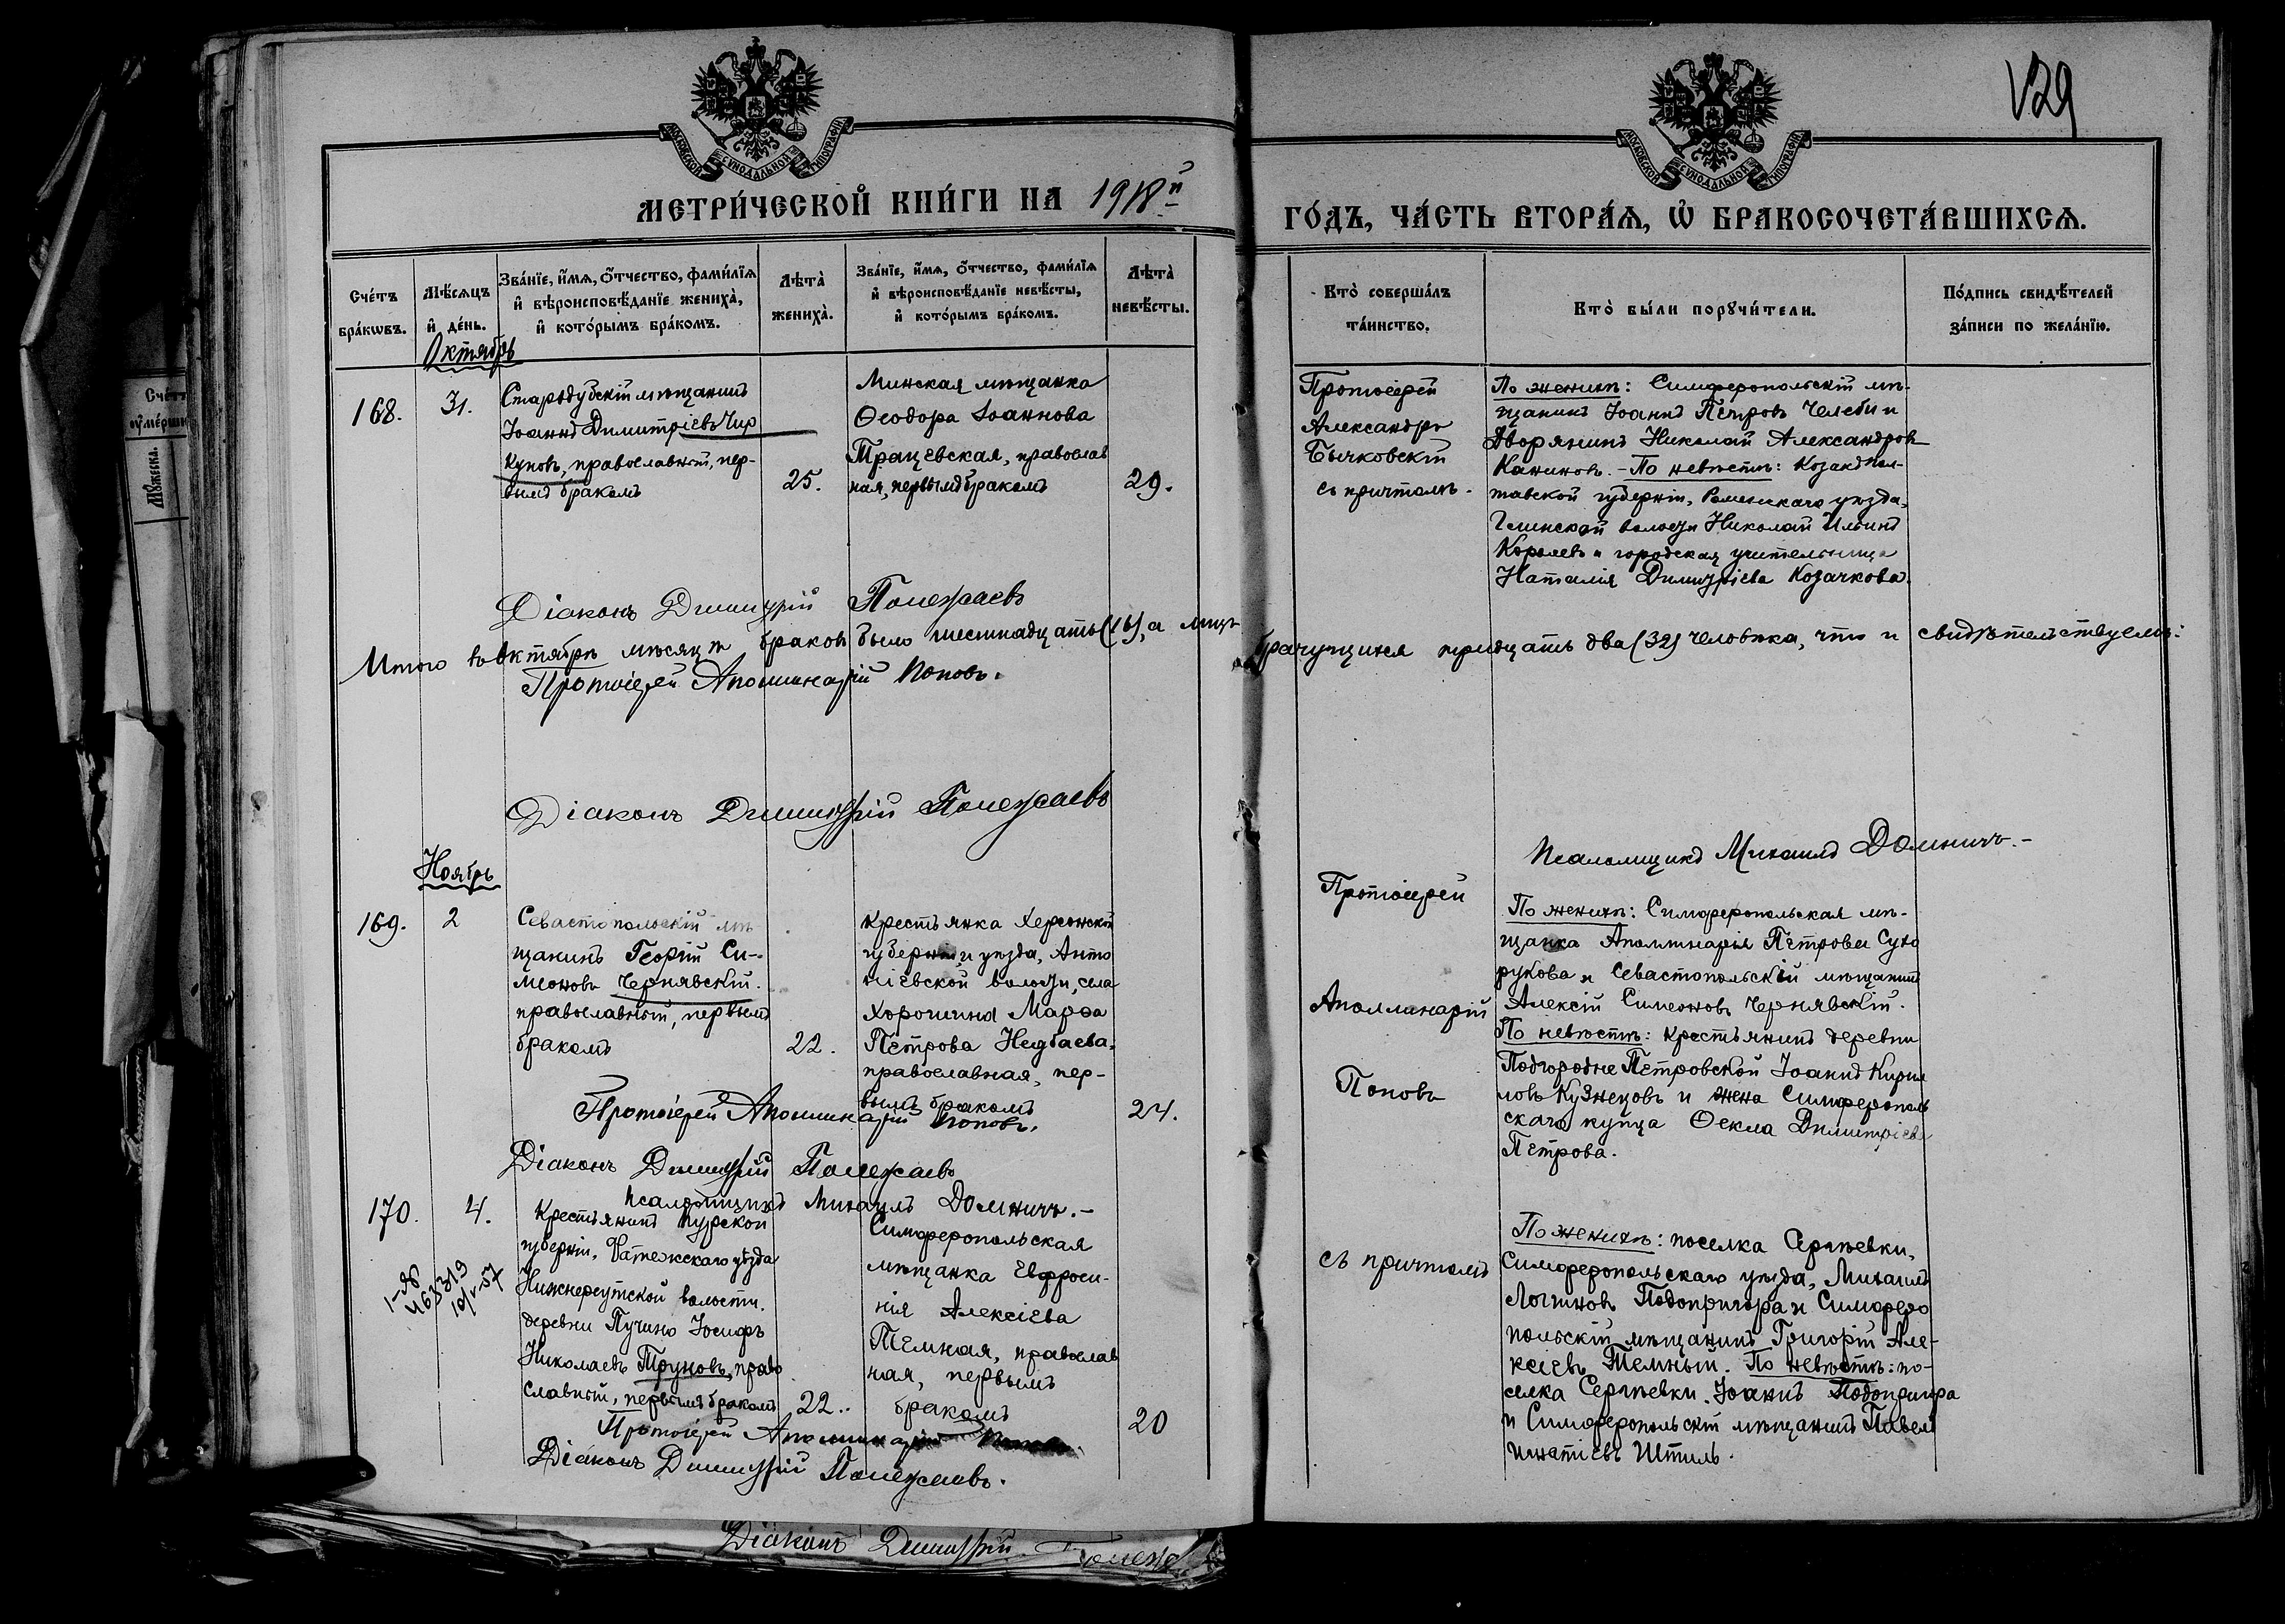 129
МОСКОВСКОЙ СУНОДАЛЬНОЙ ТИПОГРАФІИ
МОСКОВСКОЙ СУНОДАЛЬНОЙ ТИПОГРАФІИ
МЕТРИ́ЧЕСКОЙ КНИ́ГИ НА 1918й
ГО́ДЪ, ЧА́СТЬ ВТОРА́Ѧ, Ѡ БРАКОСОЧЕТА́ВШИХСѦ.
Сче́тъ
бра́кѡвъ.
Мѣ́сѧцъ
и҆ де́нь.
Зва́нїе, и҆́мѧ, ѻ҆́тчество, фами́лїѧ
и҆ вѣроисповѣ́данїе жениха̀,
и҆ кото́рымъ бра́комъ.
Лѣта̀
жениха̀.
Зва́нїе, и҆́мѧ, ѻ҆́тчество, фами́лїѧ
и҆ вѣроисповѣ́данїе невѣ́сты,
и҆ кото́рымъ бра́комъ.
Лѣта̀
невѣ́сты.
Кто̀ соверша́лъ
та́инство.
Кто̀ бы́ли порꙋчи́тели.
По́дпись свидѣ́телей
за́писи по жела́нїю.
Октябрь
168.
31.
Стародубскій мѣщанинъ
Іоаннъ Димитріевъ Чир
куновъ, православный, пер-
вымъ бракомъ
25.
Минская мѣщанка
Ѳеодора Іоаннова
Трацевская, православ
ная, первымъ бракомъ
29.
Протоіерей
Александръ
Бычковскій
съ причтомъ.
По женихѣ: Симферопольскій мѣ-
щанинъ Іоаннъ Петровъ Челеби и
дворянинъ Николай Александровъ
Каниновъ. - По невѣстѣ: Козакъ Пол-
тавской губерніи, Роменскаго уѣзда,
Глинской волости Николай Ильинъ
Королевъ и городская учительница
Наталія Димитріева Козачкова.
Діаконъ Димитрій Полежаевъ
Итого въ Октябрѣ мѣсяцѣ браковъ было шестнадцать (16), а лицъ брачущихся тридцать два (32) человѣка, что и свидѣтельствуемъ:
Протоіерей Аполлинарій Поповъ.
Діаконъ Димитрій Полежаевъ
Псаломщикъ Михаилъ Домничъ.-
Ноябрь
169.
2
Севастопольскій мѣ
щанинъ Георгій Си-
меоновъ Чернявскій.
православный, первымъ
бракомъ
22.
Крестьянка Херсонской
губерніи и уѣзда, Анто
ніевской волости, села
Хорошина Марѳа
Петрова Недбаева,
православная, пер-
вымъ бракомъ
24.
Протоіерей
Аполлинарій
Поповъ
съ причтомъ
По женихѣ: Симферопольская мѣ-
щанка Аполлинарія Петрова Сухо
рукова и Севастопольскій мѣщанинъ
Алексій Симеоновъ Чернявскій.
По невѣстѣ: крестьянинъ деревни
Подгородне Петровской Іоаннъ Кирил
ловъ Кузнецовъ и жена Симферополь
скаго купца Ѳекла Димитріева
Петрова.
Протоіерей Аполлинарій Поповъ.
Діаконъ Димитрій Полежаевъ
Псаломщикъ Михаилъ Домничъ.-
170.
4.
Крестьянинъ Курской
губерніи, Фатежскаго уѣзда
Нижнереутской волости.
деревни Пучино Іосифъ
Николаевъ Труновъ, право
славный, первымъ бракомъ
22.
Симферопольская
мѣщанка Евфроси-
нія Алексіева
Темная, православ
ная, первымъ
бракомъ
20
По женихѣ: поселка Сергѣевки,
Симферопольскаго уѣзда, Михаилъ
Логиновъ Подопригора и Симферо
польскій мѣщанинъ Григорій Але-
ксіевъ Темный. По невѣстѣ: по-
селка Сергѣевки Іоаннъ Подопригора
и Симферопольскій мѣщанинъ Павелъ
Игнатіевъ Штиль.
Протоіерей Аполлинарій Поповъ.
Діаконъ Димитрій Полежаевъ.
Діаконъ Димитрій